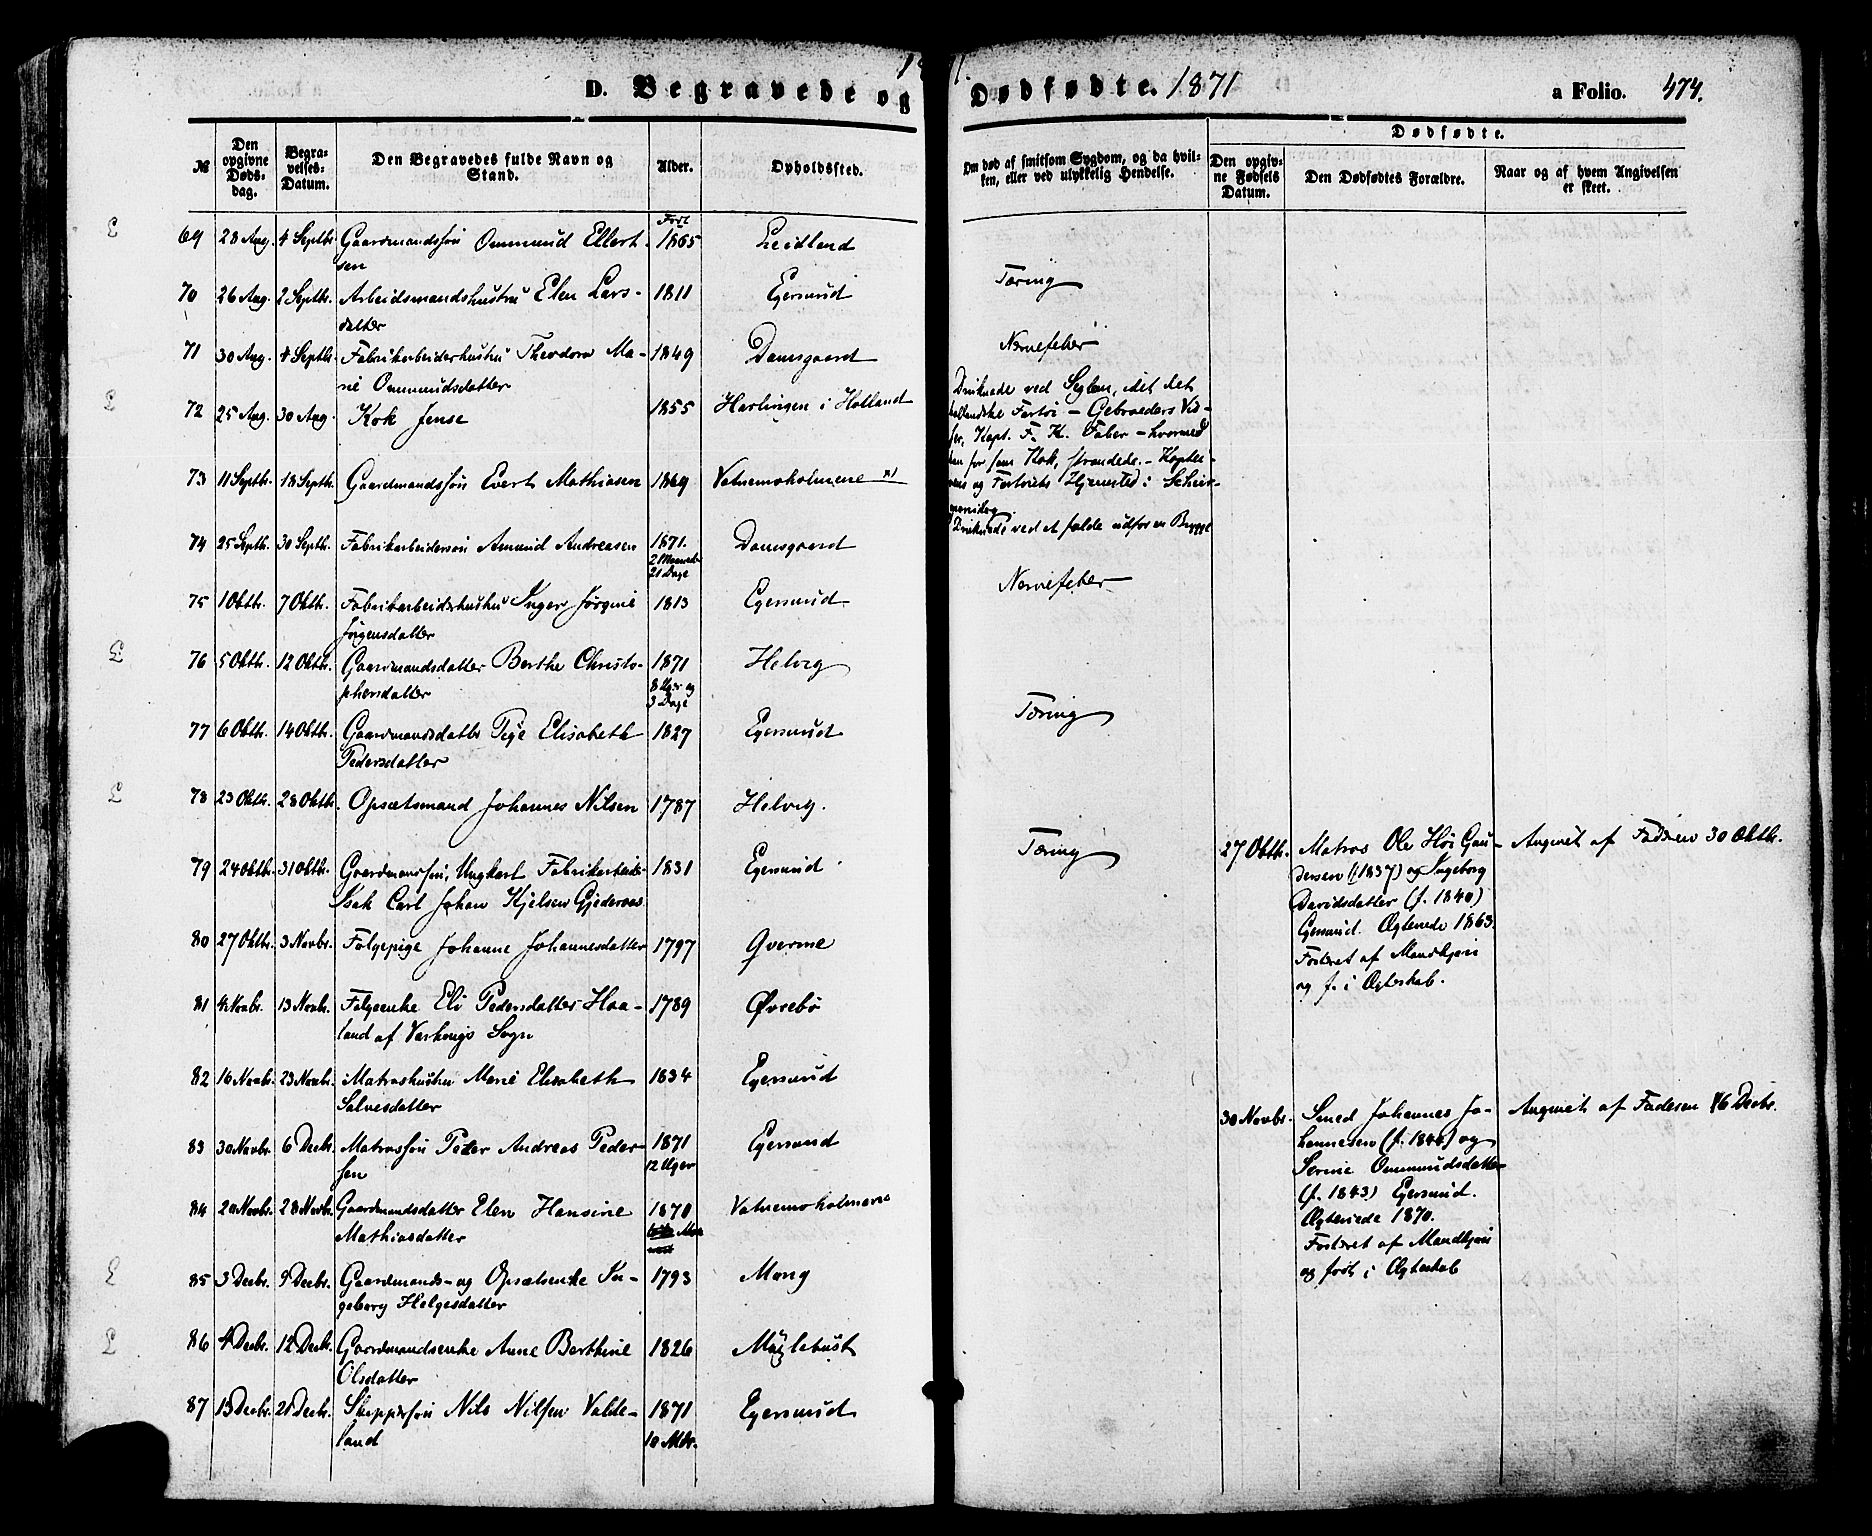 D. Begravede og
Dødfødte. 1871
a Folio. 474.
No
Den opgivne Døds-dag.
Begra-velses-Datum.
Den Begravedes fulde Navn og Stand.
Alder.
Opholdssted.
Om død af smitsom Sygdom, og da hvil-
ken, eller ved ulykkelig Hendelse.
Dødfødte.
Den opgiv-ne Fødsels Datum.
Den Dødfødtes Forældre.
Naar og af hvem Angivelsen er skeet.
69 28 Aug. 4 Septbr. Gaardmandssøn Ommund Ellert- Født 1865 Leidland
sen
70 26 Aug. 2 Septbr. Arbeidsmandshustru Elen Lars- 1811 Egersund Tæring
datter
71 30 Aug. 4 Septbr. Fabrikarbeiderhustru Theodora Ma- 1849 Damsgaard Nervefeber
rie Ommundsdatter
72 25 Aug. 30 Aug. Kok Jense 1855 Harlingen i Holland
Druknede ved Seglem, idet det
hollandske Fartøi – Gebroeders Vis-
ser, Kapt. F. K. Faber – hvormed
han for som Kok, strandede. – Kaptei-
nens og Fartøiets Hjemsted: Schier-
monnikog
73 11 Septbr. 18 Septbr. Gaardmandssøn Evert Mathiasen 1869 Vatnemoholmene
Druknede ved at falde udfor en Brygge
74 25 Septbr. 30 Septbr. Fabrikarbeidersøn Amund Andreasen 1871. Damsgaard
2 Maaneder
21 Dage
75 1 Oktbr. 7 Oktbr. Fabrikarbeiderhustru Inger Jørgine 1813 Egersund Nervefeber
Jørgensdatter
76 5 Oktbr. 12 Oktbr. Gaardmandsdatter Berthe Christo- 1871 Helvig
phersdatter 8 Uger og
3 Dage
77 6 Oktbr. 14 Oktbr. Gaardmandsdatter Pige Elisabeth 1827 Egersund Tæring
Pedersdatter
78 23 Oktbr. 28 Oktbr. Opsætsmand Johannes Nilsen 1787 Helvig.
79 24 Oktbr. 31 Oktbr. Gaardmandssøn, Ungkarl Fabrikarbeider 1831 Egersund Tæring
Isak Carl Johan Kjelsen Gjederaas
27 Oktbr. Matros Ole Høi Gau- Angivet af Faderen 30 Oktbr.
dersen (f. 1837) og Ingeborg
Davidsdatter (f. 1840)
Egersund. Ægteviede 1863.
Fosteret af Mandkjøn
og f. i Ægteskab.
80 27 Oktbr. 3 Novbr. Følgepige Johanne Johannesdatter 1797 Gverme
81 4 Novbr. 13 Novbr. Følgeenke Eli Pedersdatter Haa- 1789 Øvrebø
land af Varhougs Sogn
82 16 Novbr. 23 Novbr. Matroshustru Marie Elisabeth 1834 Egersund
Salvesdatter
83 30 Novbr. 6 Decbr. Matrossøn Peter Andreas Peder- 1871 Egersund
sen 12 Uger
30 Novbr. Smed Johannes Jo- Angivet af Faderen 16 Decbr.
hannesen (f. 1846) og
Serine Ommundsdatter
(f. 1843) Egersund.
Ægteviede 1870.
Fosteret af Mandkjøn
og født i Ægteskab
84 20 Novbr. 28 Novbr. Gaardmandsdatter Elen Hansine 1870 Vatnemoholmene
Mathiasdatter
85 3 Decbr. 9 Decbr. Gaardmands- og Opsætsenke In- 1793 Mong
geborg Helgesdatter
86 4 Decbr. 12 Decbr. Gaardmandsenke Anne Berthine 1826 Myglebust
Olsdatter
87 13 Decbr. 21 Decbr. Skippersøn Nils Nilsen Valde- 1871 Egersund
land 10 Mdr.